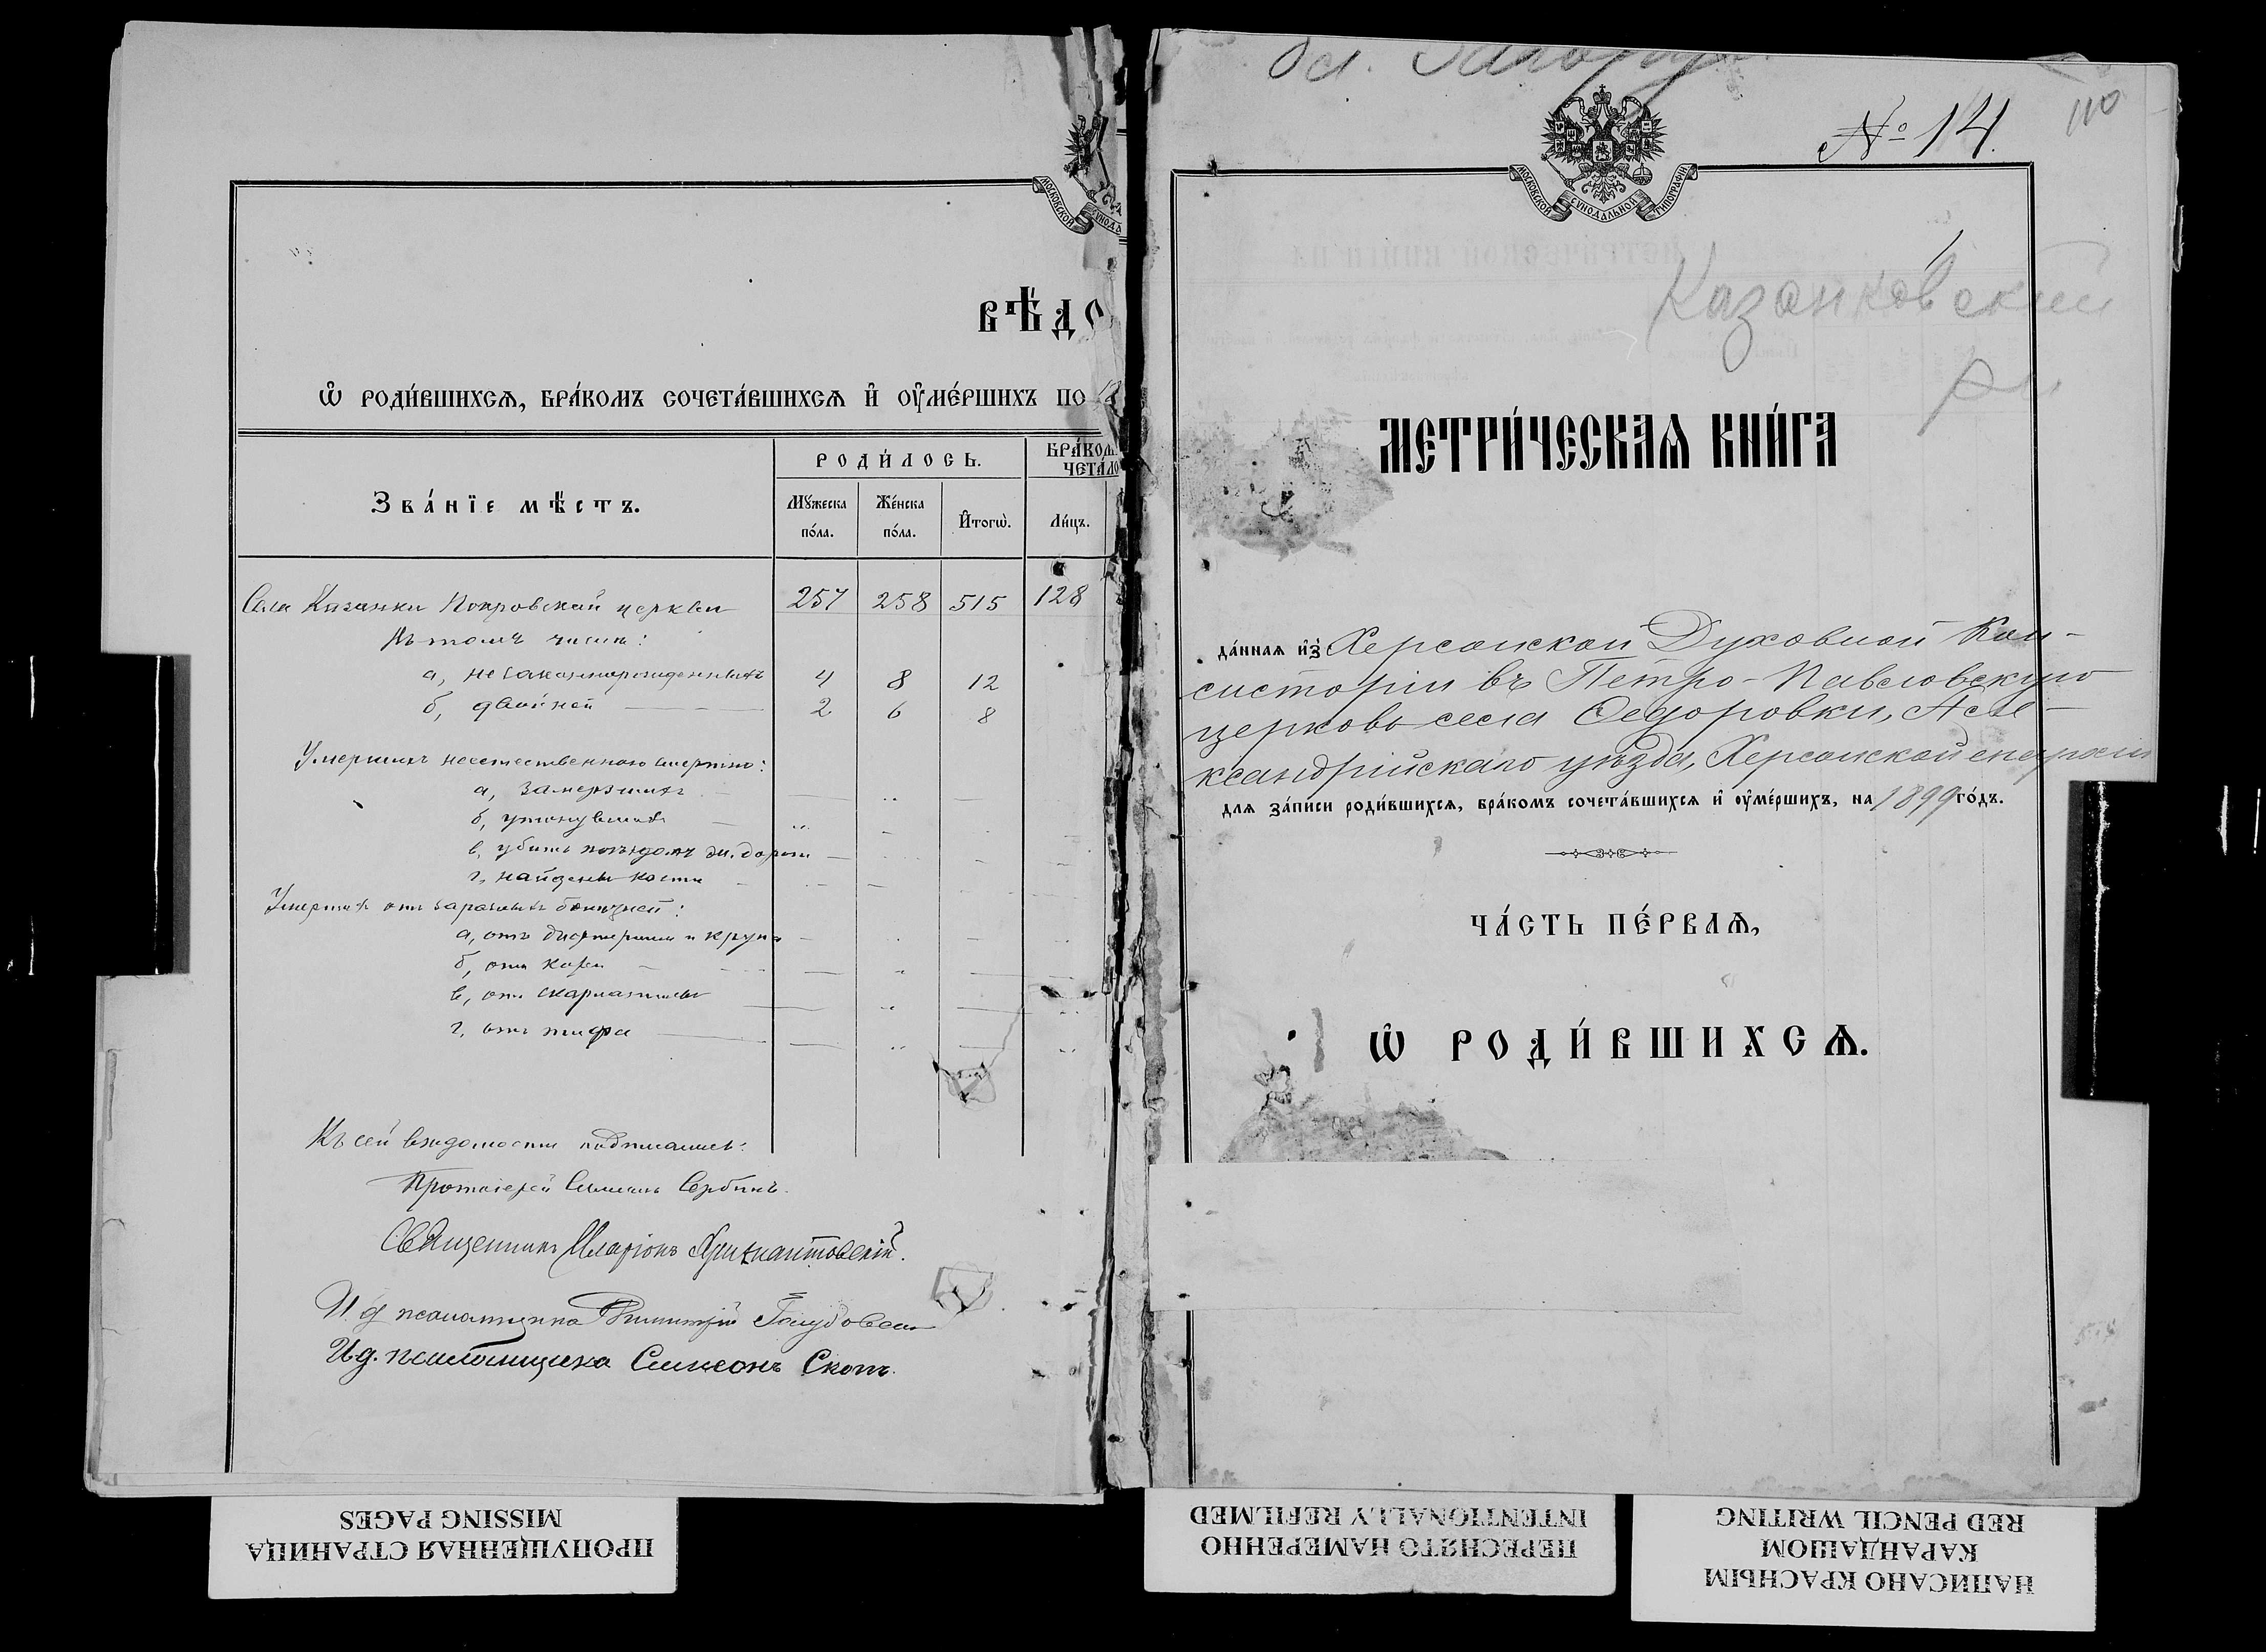 МОСКОВСКОЙ СѴНОДА
ВѢДО
Ѡ҆ РОДИ́ВШИХСѦ, БРА́КОМЪ СОЧЕТА́ВШИХСѦ И҆ ОУ҆МЕ́РШИХЪ ПО
Зва́нїе мѣ́стъ.
РОДИ́ЛОСЬ.
БРА́КОМ
ЧЕТА́ЛО
Мꙋ́жеска по́ла.
Же́нска по́ла.
И҆тогѡ̀.
Ли́цъ.
Села Казанки Покровской церкви 257 258 515 128
Въ томъ числѣ:
а, незаконнорожденныхъ 4 8 12
б, двойней 2 6 8
Умершихъ неестественною смертію:
а, замерзшихъ
б, утонувшихъ
в, убитъ поѣздомъ ж. дороги
г, найдены кости
Умершихъ отъ заразныхъ болѣзней:
а, отъ дифтерита и крупа
б, отъ кори
в, отъ скарлатины
г, отъ тифа
Къ сей вѣдомости подписались:
Протоіерей Симеонъ Сербинъ.
Священникъ Иларіонъ
И. д. псаломщика Димитрій
И. д. псаломщика Симеонъ Скопъ.
№ 14.
110
МОСКОВСКОЙ СѴНОДАЛЬНОЙ ТИПОГРАФІИ
Казанковский
р-н
МЕТРИ́ЧЕСКАѦ КНИ́ГА
да́ннаѧ и҆з̾ Херсонской Духовной Кон-
систоріи въ Петро-Павловскую
церковь села Ѳедоровки, Але-
ксандрійскаго уѣзда, Херсонской епархіи
для за́писи роди́вшихсѧ, бра́комъ сочета́вшихсѧ и҆ оу҆ме́ршихъ, на 1899 го́дъ.
ЧА́СТЬ ПЕ́РВАѦ,
Ѡ҆ РОДИ́ВШИХСѦ.
ПРОПУЩЕННАЯ СТРАНИЦА
MISSING PAGES
ПЕРЕСНЯТО НАМЕРЕННО
INTENTIONALLY REFILMED
НАПИСАНО КРАСНЫМ
КАРАНДАШОМ
RED PENCIL WRITING